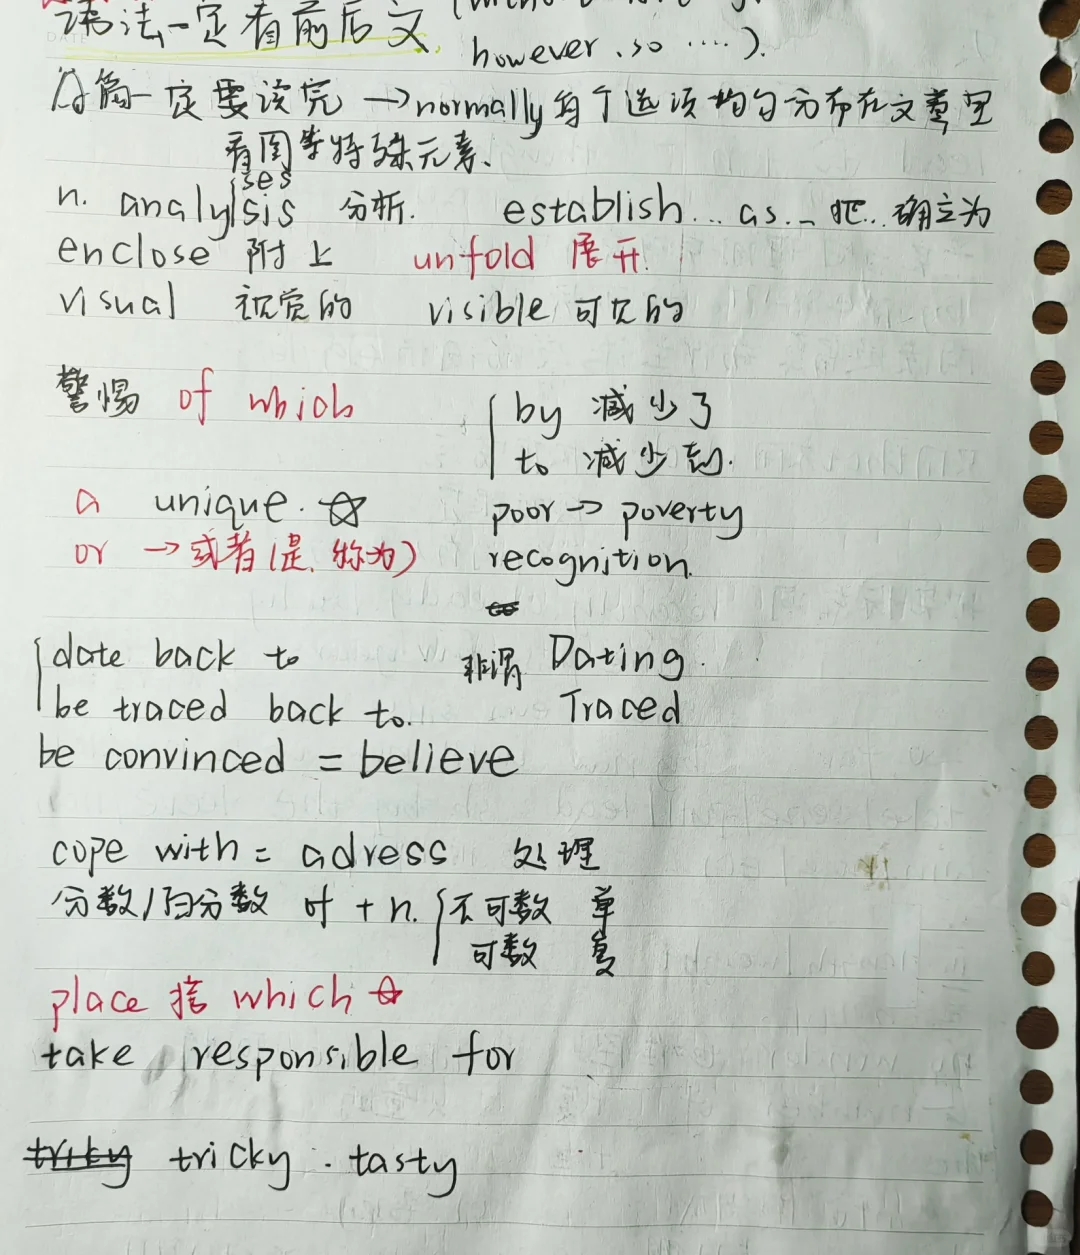 语法一定有前后文
however, so ....).
A篇一定要读完 → normally 每个选项均匀分布在文章里
看图等特殊元素.
ses
n. analysis 分析. establish... as... 把..确立为
enclose 附上 unfold 展开
visual 视觉的 visible 可见的
警惕 of which { by 减少了
to 减少到.
a unique. ☆ poor → poverty
or → 或者(是, 称为) recognition.
{ date back to 非谓 Dating.
be traced back to. Traced
be convinced = believe
cope with = adress 处理
分数/百分数 of + n. { 不可数 单
可数 复
place 搭 which ☆
take responsible for
tricky tricky. tasty